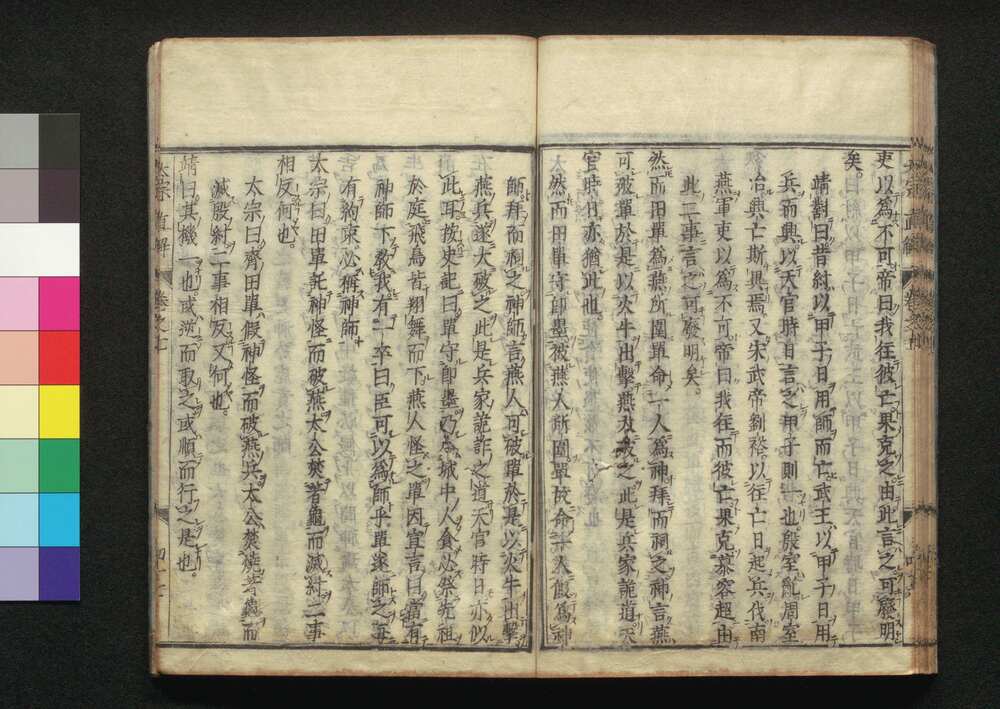 吏以為不可帝曰我往彼亡果克之由此言之可廢明
矣
靖對曰昔紂以甲子日用師而亡武王以甲子日用
兵而興以天官時日言之甲子則一也殷室亂周室
冶興亡斯異焉又宋武帝劉裕以往亡日起兵伐南
燕軍吏以為不可帝曰我往而彼亡果克慕容超由
此二事言之可廢明矣
然而田單為燕所圍單命一人為神拜而祠之神言燕
可破單於是以火牛出擊燕大破之此是兵家詭道天
官時日亦猶此也
然而田單守即墨被燕人所圍單故命一人假為神
師拜而祠之神師言燕人可破單於是以火牛出擊
燕兵遂大破之此是兵家詭詐之道天官時日亦似
此耳按史記曰單守即墨乃令城中人食必祭先祖
於庭飛鳥皆翔舞而下燕人怪之單因宣言曰當有
神師下教我有一卒曰臣可以為師乎單遂師之每
有約束必稱神師
太宗曰田單託神怪而破燕太公焚蓍龜而滅紂二事
相反何也
太宗曰齊田單假神怪而破燕兵太公焚燒蓍龜而
滅殷紂二事相反又何也
靖曰其機一也或逆而取之或順而行之是也